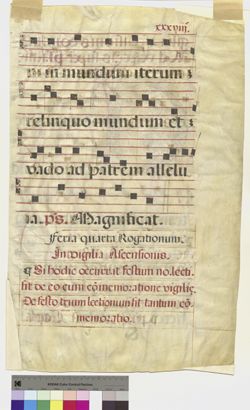 xxxviij
in mundum iterum
relinquo mundum et
vado ad patrem allelu
ia. ps. Magnificat.
Feria quarta Rogationum.
In vigilia Ascensionis.
Si hodie occurrerit festum no. lecti.
fit de eo cum cōmemoratione vigilię
De festo trium lectionum fit tantum cō
memoratio.